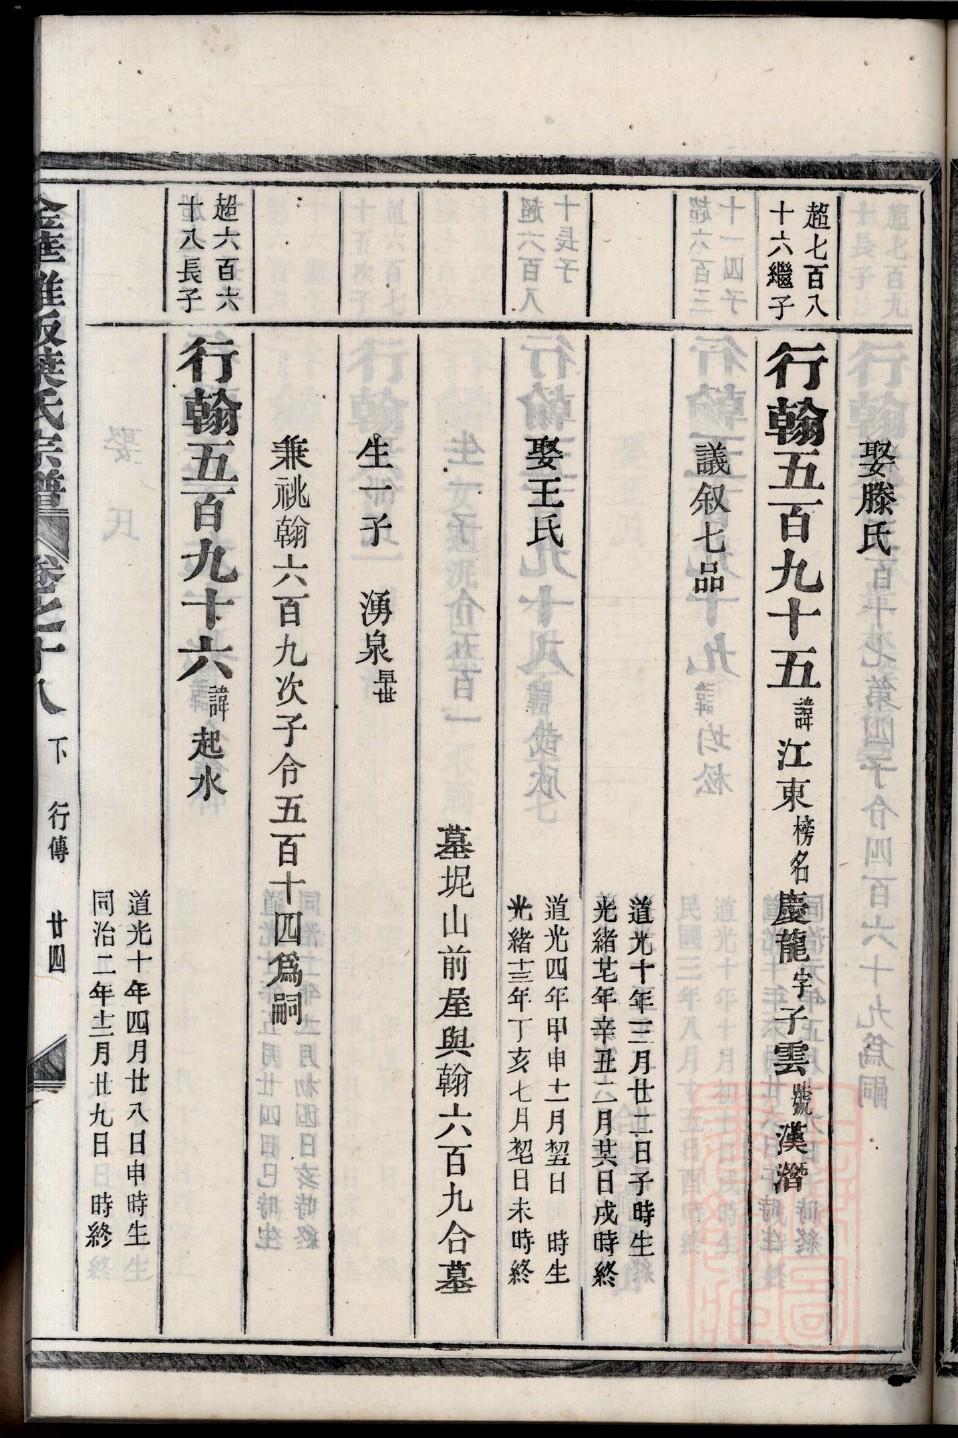 娶滕氏
超七百八
十六繼子
行翰五百九十五 諱江東榜名慶龍字子雲號漢潛
議叙七品
道光十年三月廿二日子時生
光緒廿年辛丑二月其日戌時終
娶王氏
道光四年甲申十一月初日 時生
光緒十三年丁亥七月初日未時終
墓坭山前屋與翰六百九合墓
生一子 湧泉早世
兼祧翰六百九次子令五百十四爲嗣
超六百六
十八長子
行翰五百九十六 諱起水
道光十年四月廿八日申時生
同治二年十二月廿九日 時終
金華雅坂葉氏宗譜 卷之十八 下 行傳 廿四